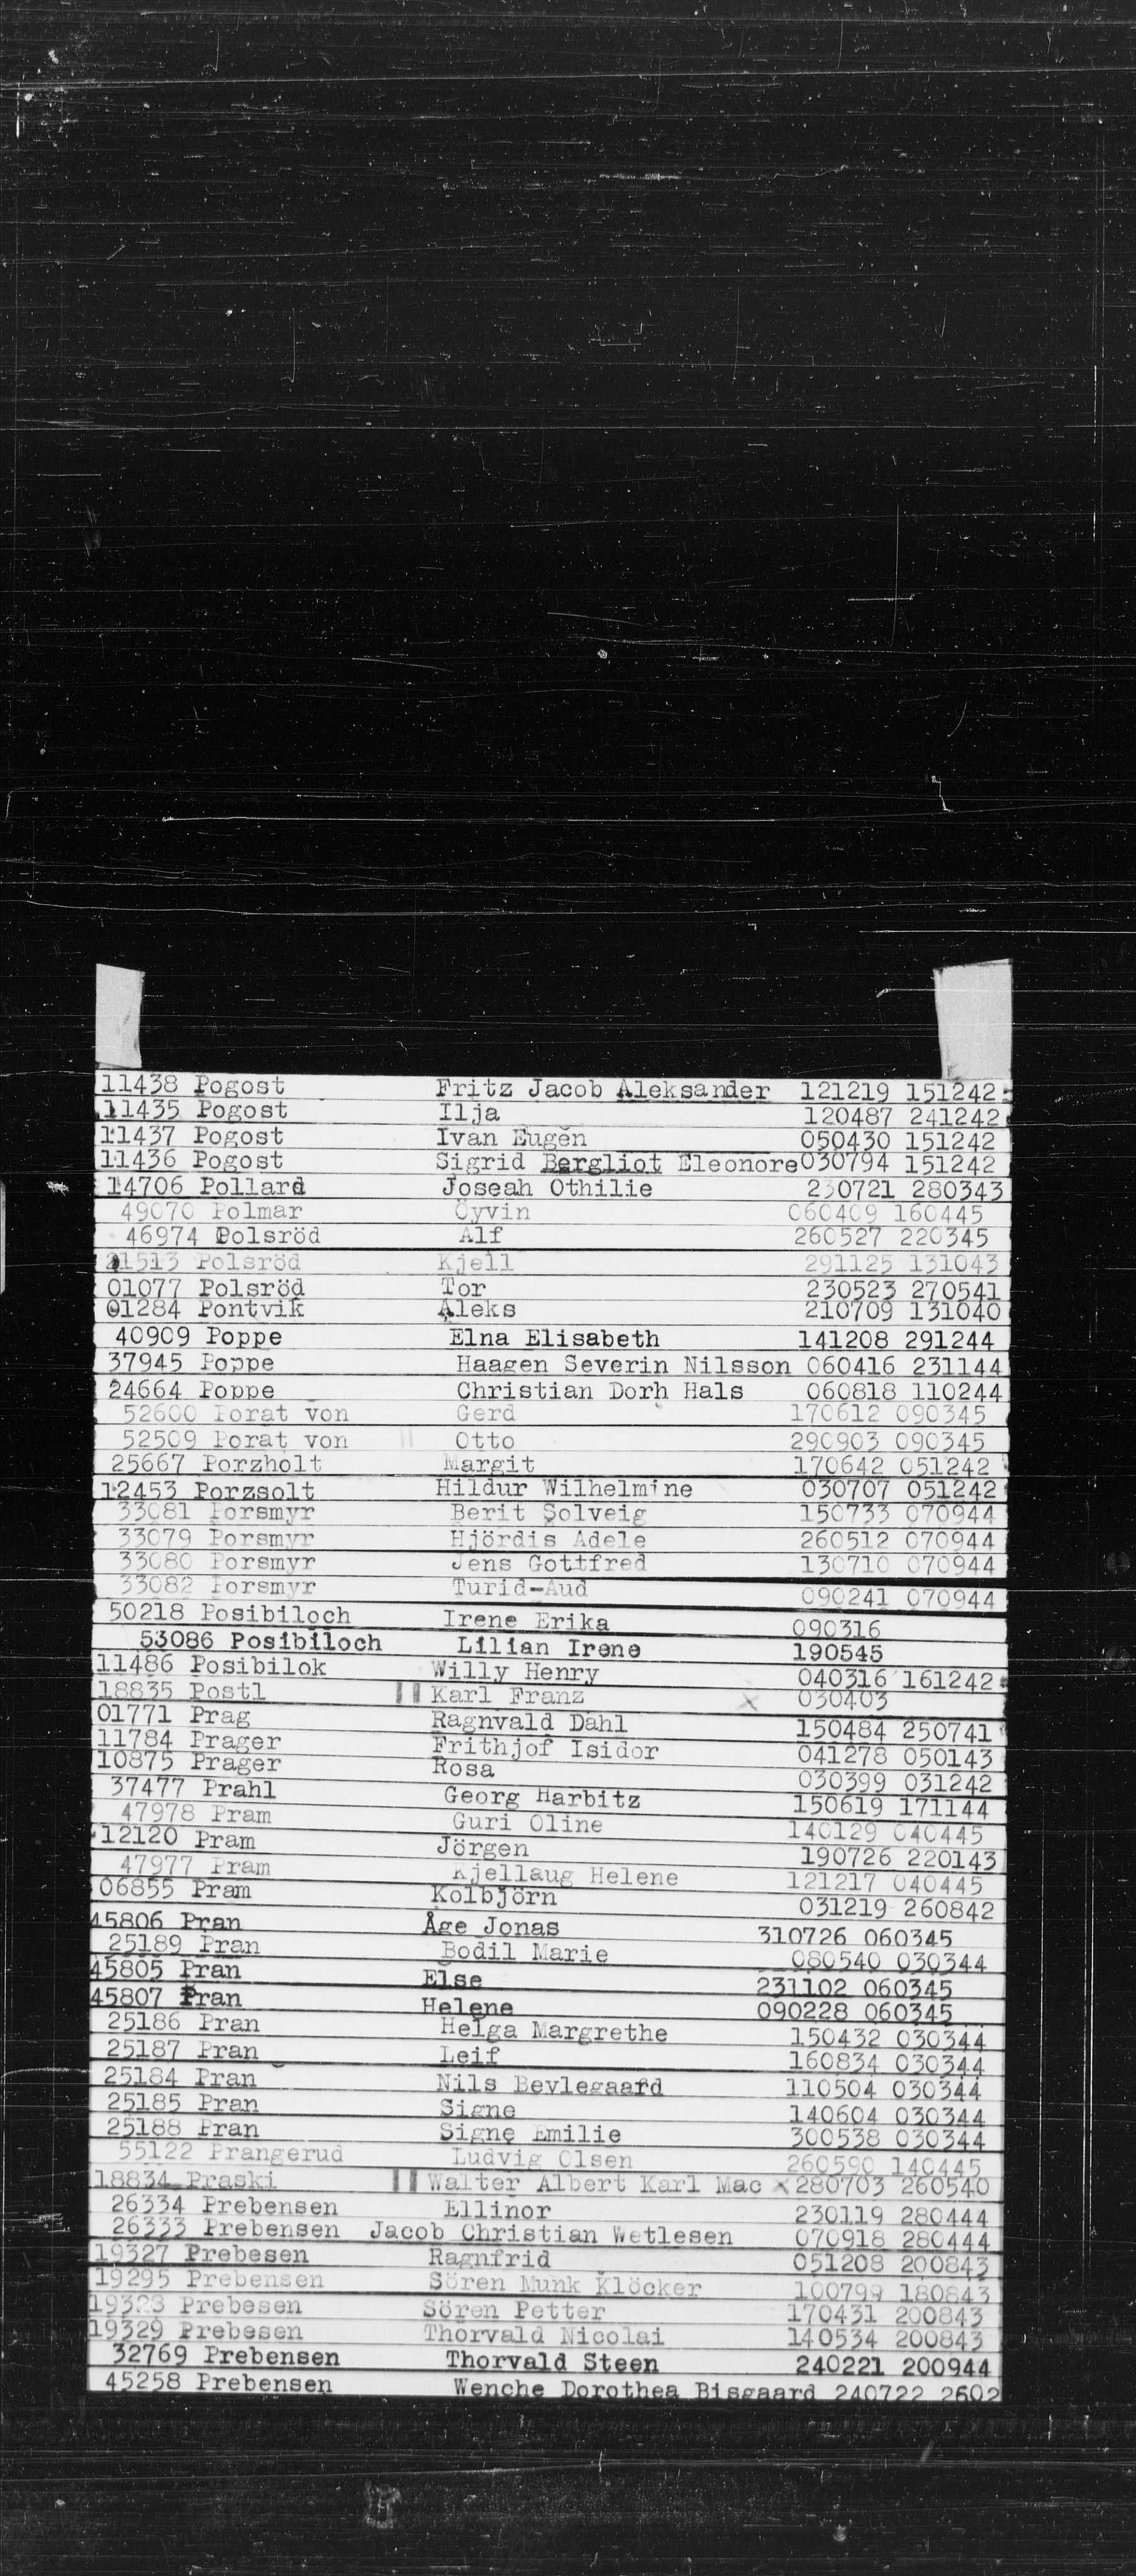 11438 Pogost Fritz Jacob Aleksander 121219 151242
11435 Pogost Ilja 120487 241242
11437 Pogost Ivan Eugén 050430 151242
11436 Pogost Sigrid Bergliot Eleonore 030794 151242
14706 Pollard Joseah Othilie 230721 280343
49070 Polmar Öyvin 060409 160445
46974 Polsröd Alf 260527 220345
21513 Polsröd Kjell 291125 131043
01077 Polsröd Tor 230523 270541
01284 Pontvik Aleks 210709 131040
40909 Poppe Elna Elisabeth 141208 291244
37945 Poppe Haagen Severin Nilsson 060416 231144
24664 Poppe Christian Dorh Hals 060818 110244
52600 Porat von Gerd 170612 090345
52509 Porat von || Otto 290903 090345
25667 Porzholt Margit 170642 051242
12453 Porzsolt Hildur Wilhelmine 030707 051242
33081 Porsmyr Berit Solveig 150733 070944
33079 Porsmyr Hjördis Adele 260512 070944
33080 Porsmyr Jens Gottfred 130710 070944
33082 Porsmyr Turid-Aud 090241 070944
50218 Posibiloch Irene Erika 090316
53086 Posibiloch Lilian Irene 190545
11486 Posibilok Willy Henry 040316 161242
18835 Postl || Karl Franz x 030403
01771 Prag Ragnvald Dahl 150484 250741
11784 Prager Frithjof Isidor 041278 050143
10875 Prager Rosa 030399 031242
37477 Prahl Georg Harbitz 150619 171144
47978 Pram Guri Oline 140129 040445
12120 Pram Jörgen 190726 220143
47977 Pram Kjellaug Helene 121217 040445
06855 Pram Kolbjörn 031219 260842
45806 Pran Åge Jonas 310726 060345
25189 Pran Bodil Marie 080540 030344
45805 Pran Else 231102 060345
45807 Pran Helene 090228 060345
25186 Pran Helga Margrethe 150432 030344
25187 Pran Leif 160834 030344
25184 Pran Nils Bevlegaard 110504 030344
25185 Pran Signe 140604 030344
25188 Pran Signe Emilie 300538 030344
55122 Prangerud Ludvig Olsen 260590 140445
18834 Praski || Walter Albert Karl Mac x 280703 260540
26334 Prebensen Ellinor 230119 280444
26333 Prebensen Jacob Christian Wetlesen 070918 280444
19327 Prebesen Ragnfrid 051208 200843
19295 Prebensen Sören Munk Klöcker 100799 180843
19328 Prebesen Sören Petter 170431 200843
19329 Prebesen Thorvald Nicolai 140534 200843
32769 Prebensen Thorvald Steen 240221 200944
45258 Prebensen Wenche Dorothea Bisgaard 240722 2602